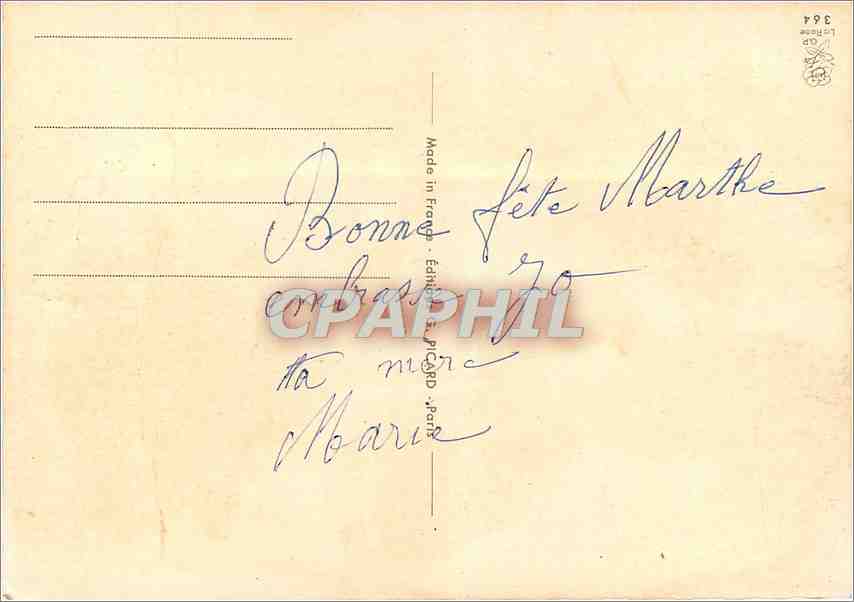 Bonne fête Marthe
embrasse Jo
ta mère
Marie
Made in France - Éditions G. PICARD - Paris
CPAPHIL
364
La Rose
GP